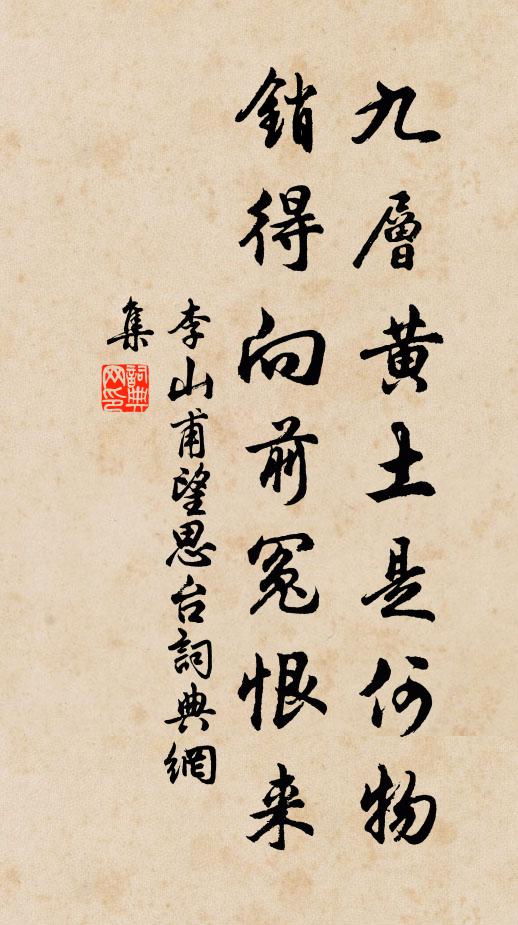 九層黄土是何物
銷得向前冤恨来
李山甫望思台詞典網
集
詞典
网印